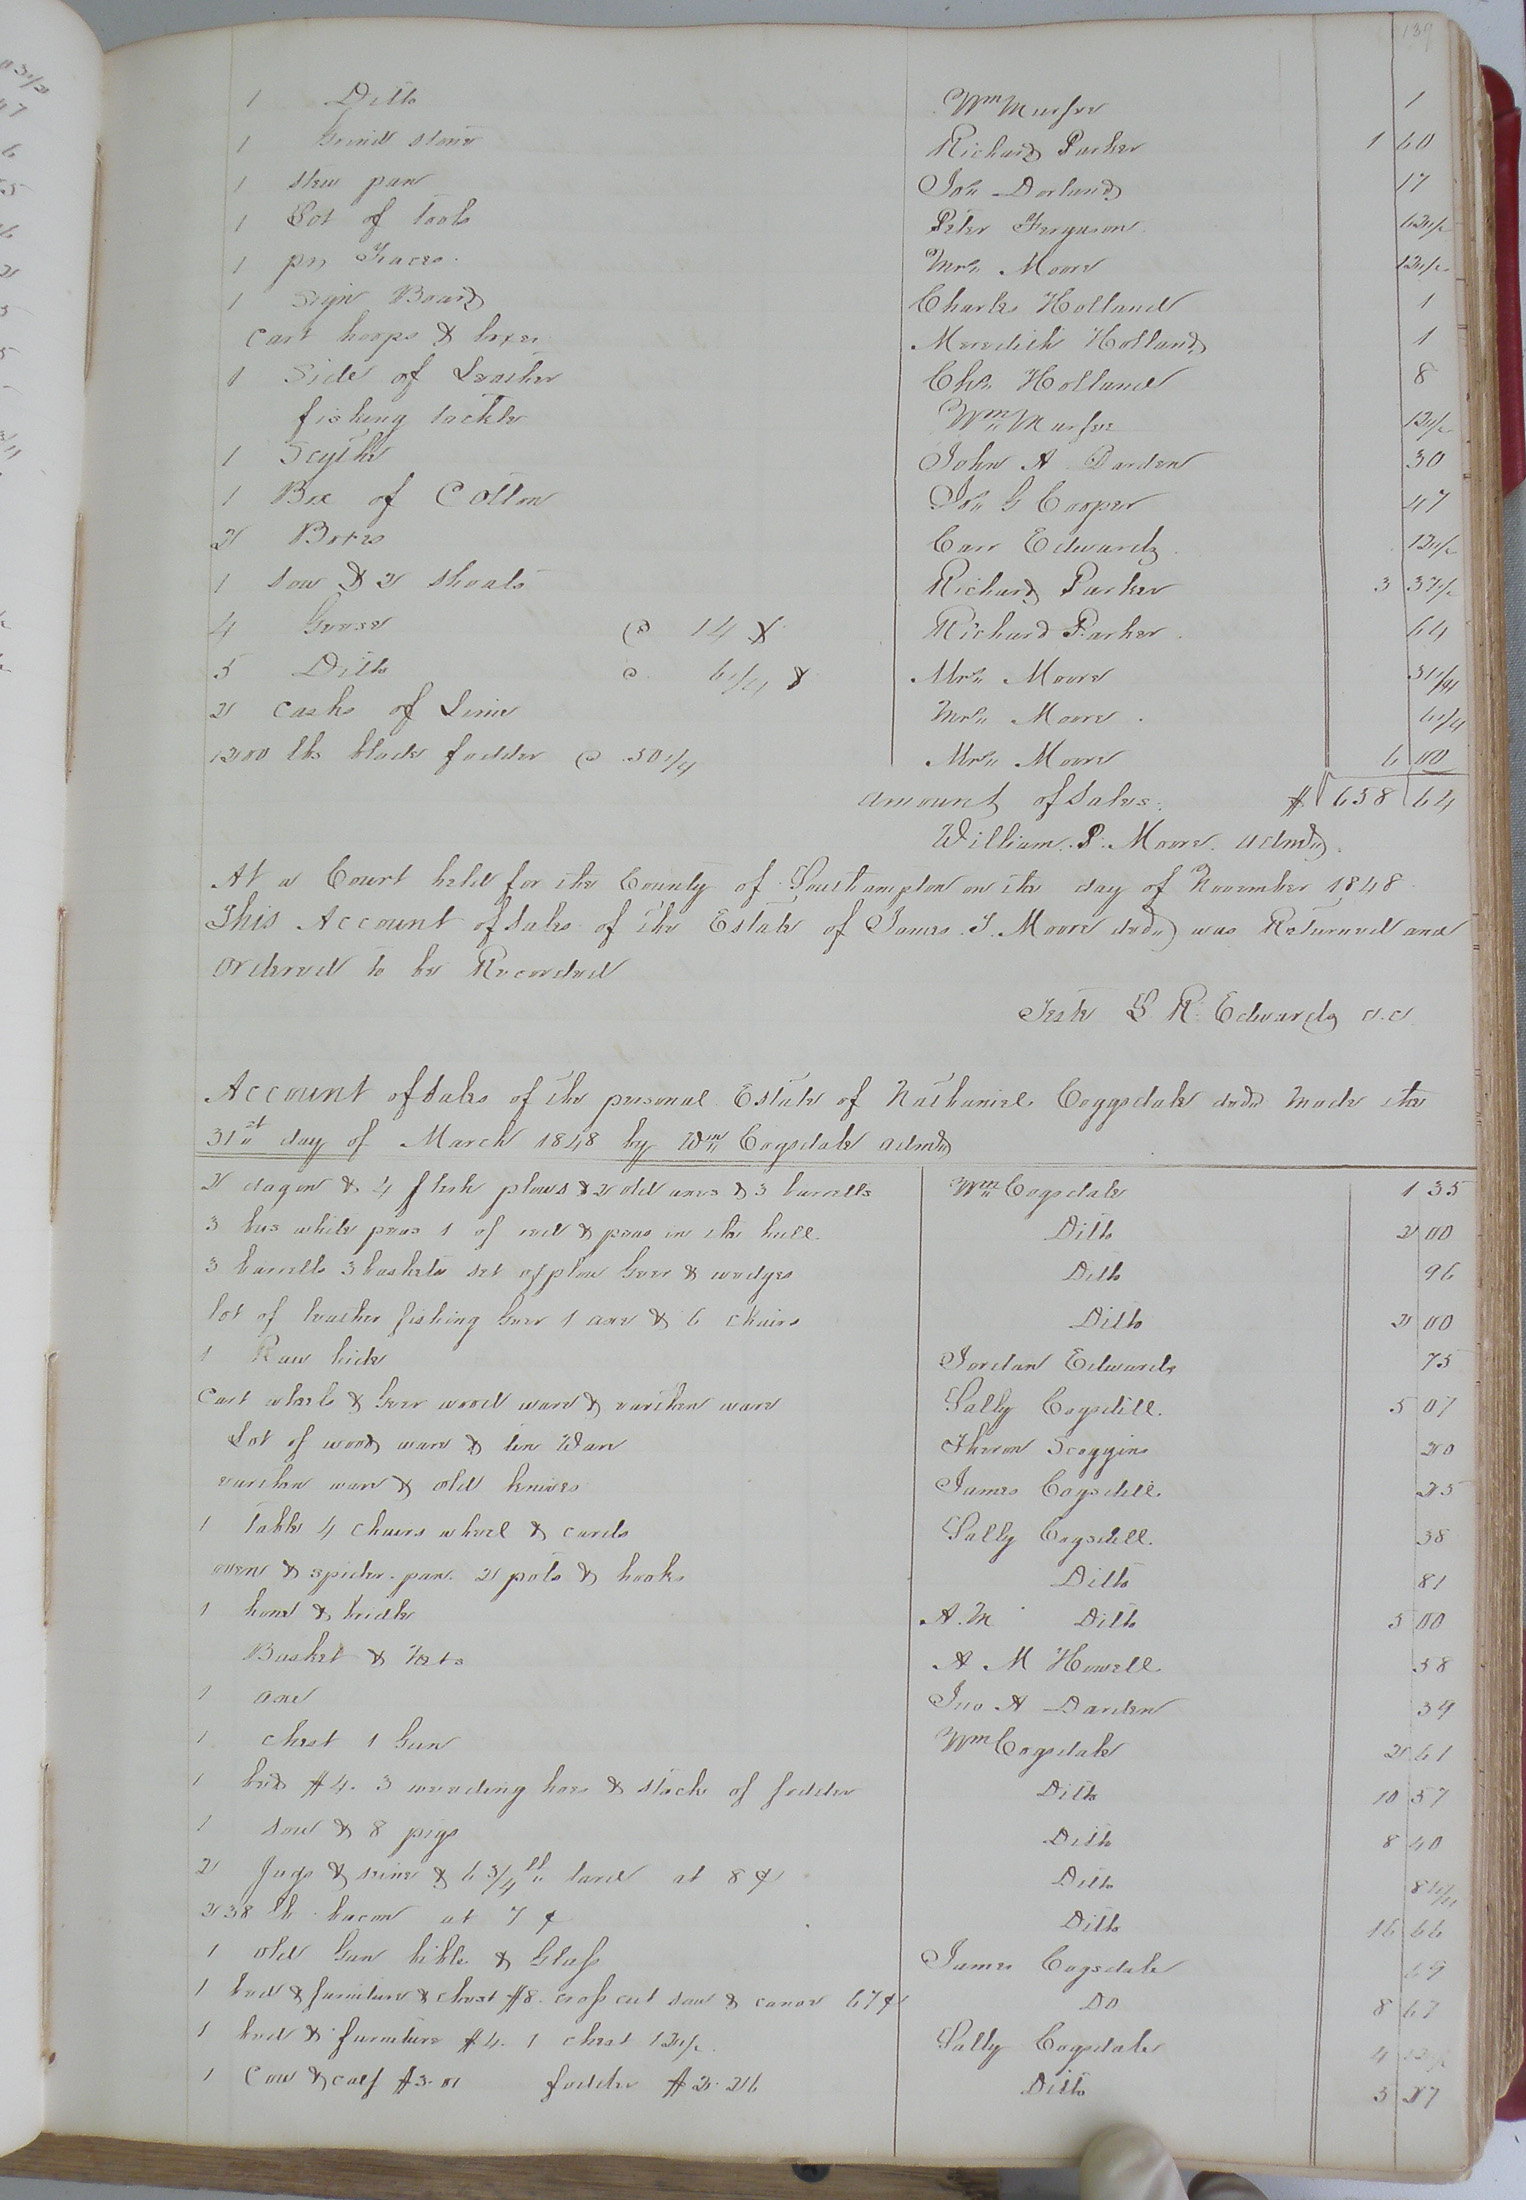 139
1 Ditto Wm Murfee 1
1 Grind stone Richard Parker 1 60
1 stew pan Jos Dorland 17
1 Lot of tools Peter Ferguson 12 1/2
1 pr Traces Mrs Moore 12 1/2
1 Sign Board Charles Holland 1
Cart hoops & boxes Meredith Holland 1
1 Side of Leather Chs Holland 8
fishing tackle Wm Murfee 12 1/2
1 Scythe John A Darden 30
1 Box of Cotton Jos G Cooper 47
2 Boxes Carr Edwards 12 1/2
1 sow & 2 shoats Richard Parker 3 37 1/2
4 Geese @ 14 Richard Parker 64
5 Ditto @ 6 1/4 Mrs Moore 31 1/4
2 casks of Lime Mrs Moore 6 1/4
1200 lbs blade fodder @ 50 1/4 Mrs Moore 6 00
amount of Sales $ 638 64
William P. Moore admr
At a Court held for the County of Southampton on the day of November 1848
This Account of Sales of the Estate of James T. Moore decd was Returned and
Ordered to be Recorded
Teste L R Edwards c.c
Account of Sales of the personal Estate of Nathaniel Coggsdale decd made the
31st day of March 1848 by Wm Cogsdale admr
2 dagon & 4 flesh plows & 2 old axes & 3 barrells Wm Cogsdale 1 35
3 bus white peas 1 of red & peas in the hull Ditto 2 00
3 barrells 3 baskets set of plow Geer & wedges Ditto 96
lot of leather fishing Geer 1 axe & 6 chairs Ditto 2 00
1 Raw hide Jordan Edwards 75
Cart wheels & Geer wood ware & earthen ware Sally Cogsdill 5 07
Lot of wood ware & tin Ware Theron Scoggins 20
earthen ware & old knives James Cogsdill 25
1 table 4 chairs wheel & cards Sally Cogsdill 38
oven & spider pan 2 pots & hooks Ditto 81
1 horse & bridle A. M Ditto 5 00
Basket & Nets A M Howell 58
1 axe Jno A Darden 39
1 chest 1 Gun Wm Cogsdale 2 61
1 bed $4. 3 weeding hoes & stack of fodder Ditto 10 57
1 sow & 8 pigs Ditto 8 40
2 Jugs & seine & 6 3/4 lb lard at 8 ¢ Ditto
238 lb bacon at 7 ¢ Ditto 16 66
1 old Gun bible & Glass James Cogsdale 69
1 bed & furniture & chest $8 cross cut saw & canoe 67 ¢ Do 8 67
1 bed & furniture $4. 1 chest 12 1/2 Sally Cogsdale 4 12 1/2
1 Cow & calf $3.01 fodder $2.26 Ditto 5 27